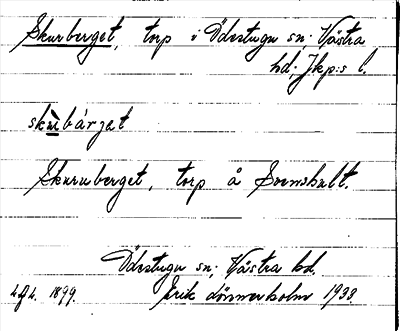 Skurberget, torp i Ödestugu sn; Västra
hd; Jkp:s l.
skùrbárjat
Skuruberget, torp å Svenshult.
Ödestugu sn; Västra hd.
1899. Erik Lönnerholm 1938.